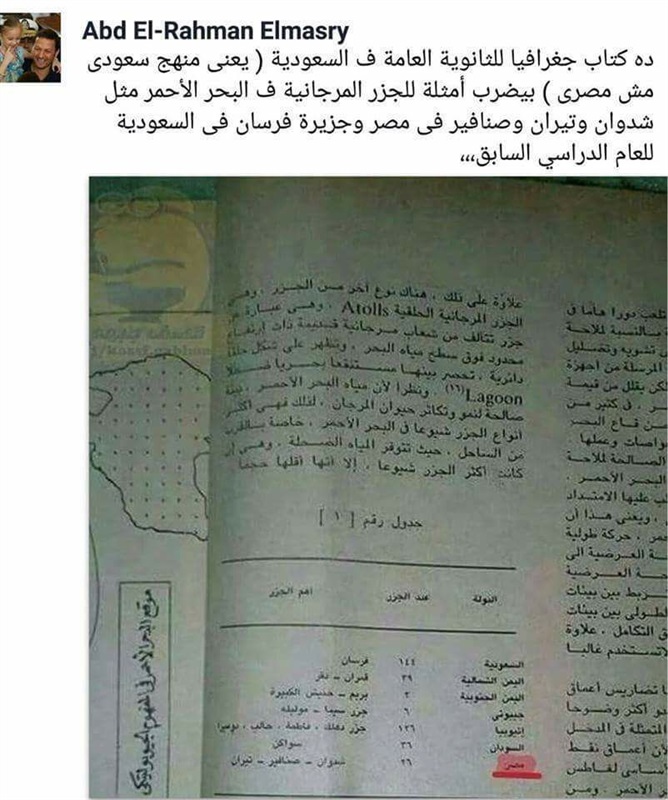 Abd El-Rahman Elmasry
ده كتاب جغرافيا للثانوية العامة ف السعودية ( يعنى منهج سعودى
مش مصرى ) بيضرب أمثلة للجزر المرجانية ف البحر الأحمر مثل
شدوان وتيران وصنافير فى مصر وجزيرة فرسان فى السعودية
للعام الدراسي السابق,,,
علاوة على ذلك ، هناك نوع آخر من الجزر ، وهى
الجزر المرجانية الحلقية Atolls ، وهى عبارة عن
جزر تتألف من شعاب مرجانية قديمة ذات إرتفاع
محدود فوق سطح مياه البحر ، وتظهر على شكل
دائرية ، تحصر بينها مستنقعا بحريا
Lagoon(١٦) . ونظرا لأن مياه البحر الأحمر ،
صالحة لنمو وتكاثر حيوان المرجان ، لذلك فهى أكثر
أنواع الجزر شيوعا فى البحر الأحمر ، خاصة بالقرب
من الساحل ، حيث تتوفر المياه الضحلة . وهى إن
كانت أكثر الجزر شيوعا ، إلا أنها أقلها حجما
جدول رقم [ ١ ]
الدولة عدد الجزر أهم الجزر
السعودية ١٤٤ فرسان
اليمن الشمالية ٣٩ قمران -
اليمن الجنوبية ٣ بريم - حنيش الكبيرة
جيبوتي ٦ جزر سيبا - موليله
إثيوبيا ١٢٦ جزر دهلك ، فاطمة ، حالب ،
السودان ٣٦ سواكن
مصر ٢٦ شدوان - صنافير - تيران
تلعب دورا هاما فى
بالنسبة للملاحة
تشويه وتضليل
المرسلة من أجهزة
لكن يقلل من قيمة
، فى كثير من
من قاع البحر
واصلات وعملها
الصالحة للملاحة
البحر الأحمر .
ب عليها الامتداد
، ويعنى هذا أن
حمر ، حركة طولية
ة العرضية الى
ة العرضية
ربط بين بيئات
لطولى بين بيئات
ق التكامل ، علاوة
لاتستخدم غالبا
تضاريس أعماق
دو أكثر وضوحا
المتمثلة فى المدخل
لأن أعماق نقط
لغاطس
ر الأحمر . ومن
موقع البحر الأحمر فى المفهوم الجيوبوليتيكى